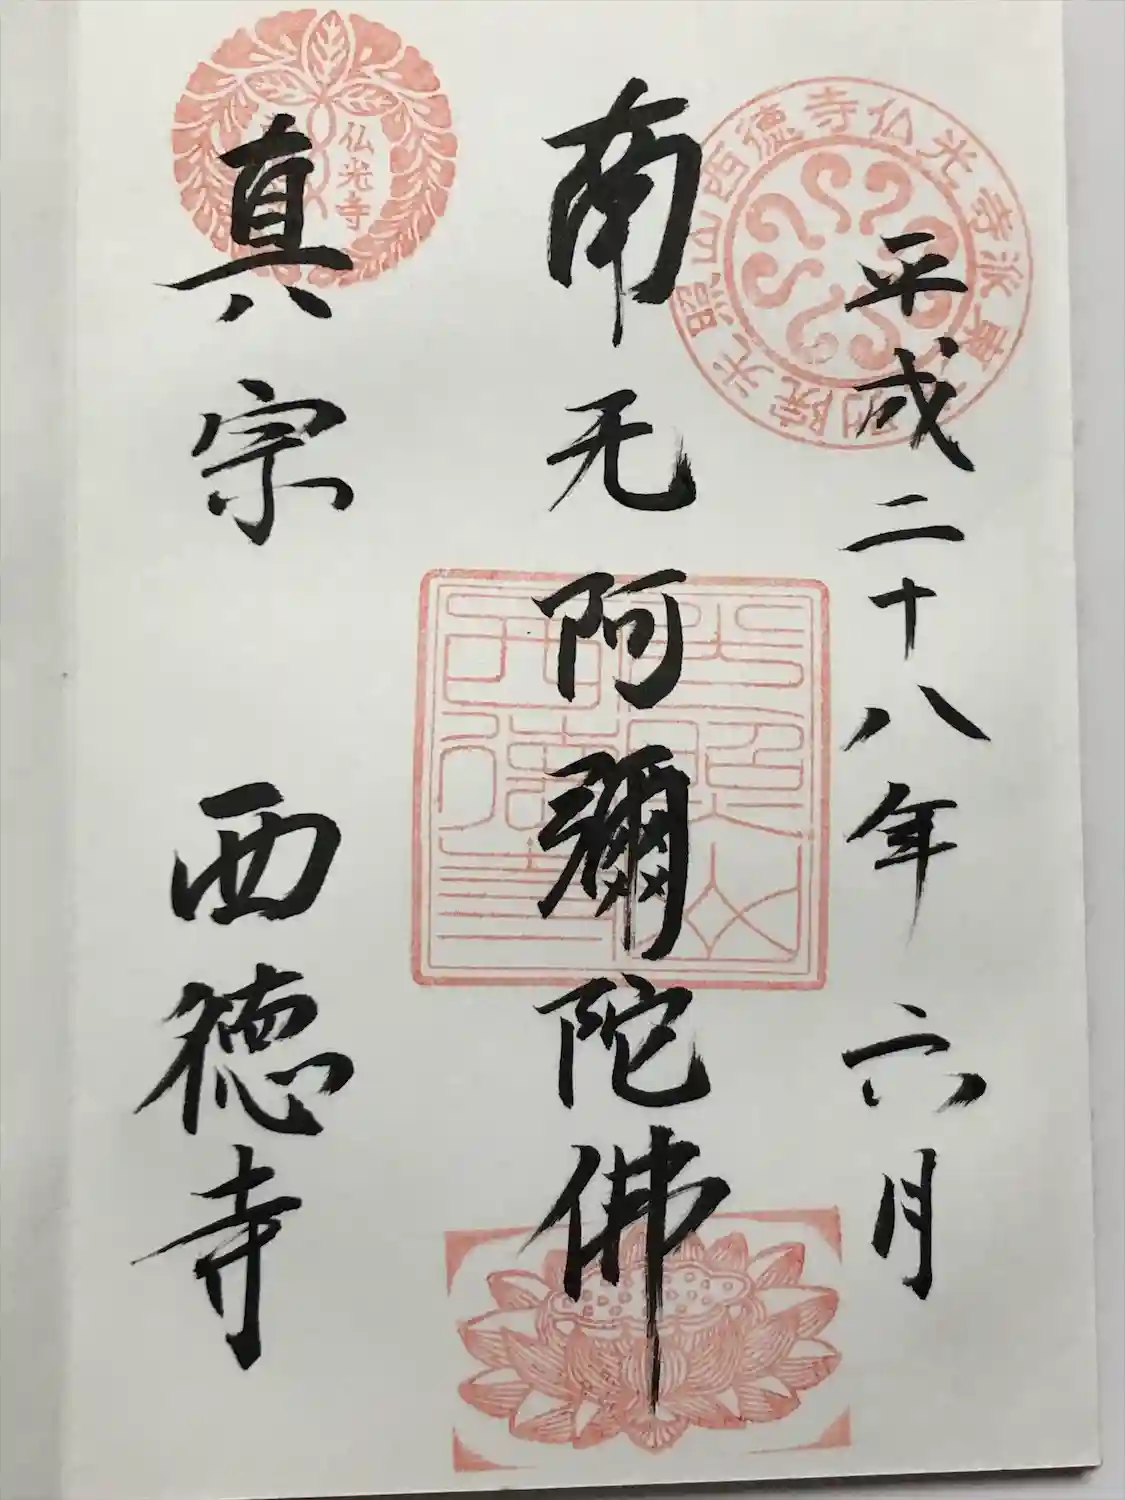 平成二十八年六月
南无阿彌陀佛
真宗 西徳寺
仏光寺派東京別院光照山西徳寺
仏光寺